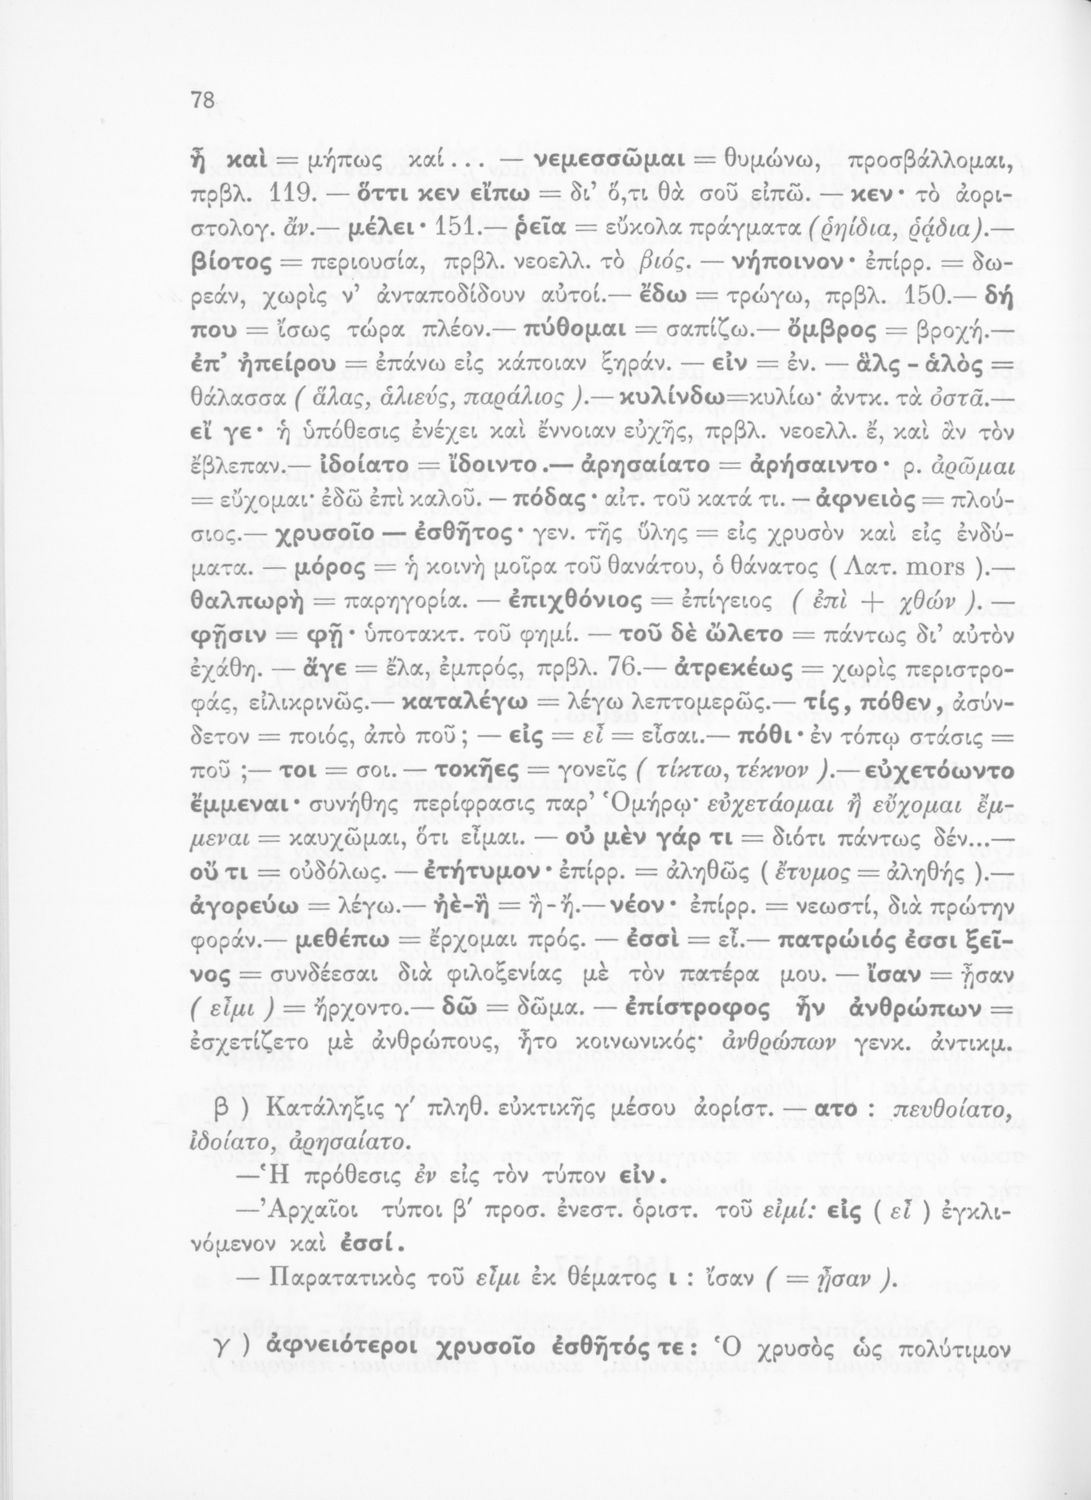 78
ἦ καὶ = μήπως καί... — νεμεσσῶμαι = θυμώνω, προσβάλλομαι,
πρβλ. 119. — ὅττι κεν εἴπω = δι’ ὅ,τι θὰ σοῦ εἰπῶ. — κεν· τὸ ἀορι-
στολογ. ἄν.— μέλει· 151.— ῥεῖα = εὔκολα πράγματα (ῥηίδια, ῥᾴδια).—
βίοτος = περιουσία, πρβλ. νεοελλ. τὸ βιός. — νήποινον· ἐπίρρ. = δω-
ρεάν, χωρὶς ν’ ἀνταποδίδουν αὐτοί.— ἔδω = τρώγω, πρβλ. 150.— δή
που = ἴσως τώρα πλέον.— πύθομαι = σαπίζω.— ὄμβρος = βροχή.—
ἐπ’ ἠπείρου = ἐπάνω εἰς κάποιαν ξηράν. — εἰν = ἐν. — ἅλς - ἁλὸς =
θάλασσα ( ἅλας, ἁλιεύς, παράλιος ).— κυλίνδω=κυλίω· ἀντκ. τὰ ὀστᾶ.—
εἴ γε· ἡ ὑπόθεσις ἐνέχει καὶ ἔννοιαν εὐχῆς, πρβλ. νεοελλ. ἔ, καὶ ἂν τὸν
ἔβλεπαν.— ἰδοίατο = ἴδοιντο.— ἀρησαίατο = ἀρήσαιντο· ρ. ἀρῶμαι
= εὔχομαι· ἐδῶ ἐπὶ καλοῦ. — πόδας· αἰτ. τοῦ κατά τι. — ἀφνειὸς = πλού-
σιος.— χρυσοῖο — ἐσθῆτος· γεν. τῆς ὕλης = εἰς χρυσὸν καὶ εἰς ἐνδύ-
ματα. — μόρος = ἡ κοινὴ μοῖρα τοῦ θανάτου, ὁ θάνατος ( Λατ. mors ).—
θαλπωρὴ = παρηγορία. — ἐπιχθόνιος = ἐπίγειος ( ἐπὶ + χθών ). —
φῇσιν = φῇ· ὑποτακτ. τοῦ φημί. — τοῦ δὲ ὤλετο = πάντως δι’ αὐτὸν
ἐχάθη. — ἄγε = ἔλα, ἐμπρός, πρβλ. 76.— ἀτρεκέως = χωρὶς περιστρο-
φάς, εἰλικρινῶς.— καταλέγω = λέγω λεπτομερῶς.— τίς, πόθεν, ἀσύν-
δετον = ποιός, ἀπὸ ποῦ ; — εἰς = εἶ = εἶσαι.— πόθι· ἐν τόπῳ στάσις =
ποῦ ;— τοι = σοι. — τοκῆες = γονεῖς ( τίκτω, τέκνον ).— εὐχετόωντο
ἔμμεναι· συνήθης περίφρασις παρ’ Ὁμήρῳ· εὐχετάομαι ἢ εὔχομαι ἔμ-
μεναι = καυχῶμαι, ὅτι εἶμαι. — οὐ μὲν γάρ τι = διότι πάντως δέν...—
οὔ τι = οὐδόλως. — ἐτήτυμον· ἐπίρρ. = ἀληθῶς ( ἔτυμος = ἀληθής ).—
ἀγορεύω = λέγω.— ἠὲ-ἢ = ἢ-ἤ.— νέον· ἐπίρρ. = νεωστί, διὰ πρώτην
φοράν.— μεθέπω = ἔρχομαι πρός. — ἐσσὶ = εἶ.— πατρώιός ἐσσι ξεῖ-
νος = συνδέεσαι διὰ φιλοξενίας μὲ τὸν πατέρα μου. — ἴσαν = ᾖσαν
( εἶμι ) = ἤρχοντο.— δῶ = δῶμα. — ἐπίστροφος ἦν ἀνθρώπων =
ἐσχετίζετο μὲ ἀνθρώπους, ἦτο κοινωνικός· ἀνθρώπων γενκ. ἀντικμ.
β ) Κατάληξις γ′ πληθ. εὐκτικῆς μέσου ἀορίστ. — ατο : πευθοίατο,
ἰδοίατο, ἀρησαίατο.
—Ἡ πρόθεσις ἐν εἰς τὸν τύπον εἰν.
—Ἀρχαῖοι τύποι β′ προσ. ἐνεστ. ὁριστ. τοῦ εἰμί: εἰς ( εἶ ) ἐγκλι-
νόμενον καὶ ἐσσί.
— Παρατατικὸς τοῦ εἶμι ἐκ θέματος ι : ἴσαν ( = ᾖσαν ).
γ ) ἀφνειότεροι χρυσοῖο ἐσθῆτός τε: Ὁ χρυσὸς ὡς πολύτιμον